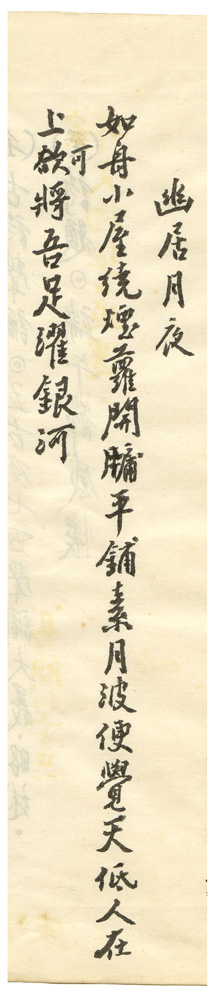 幽居月夜
如舟小屋繞煙蘿開牗平鋪素月波便覺天低人在
上欲可將吾足濯銀河